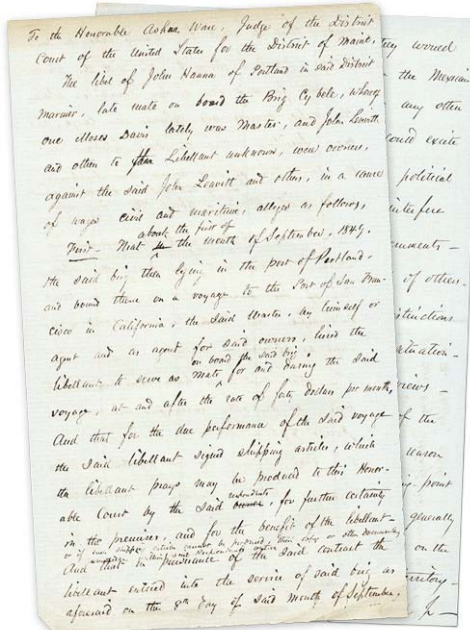 To the Honorable Ashur Ware, Judge of the District
Court of the United States for the District of Maine.
The libel of John Hanna of Portland in said District
Mariner, late mate on board the Brig Cybele, whereof
one Moses Davis lately was Master, and John Leavitt
and others to Libellant unknown, were owners,
against the said John Leavitt and others, in a cause
of wages civil and maritime, alleges as follows,
about the first of
First. That the month of September, 1849,
the said brig then lying in the port of Portland,
and bound thence on a voyage to the Port of San Fran-
cisco in California, the said Master, by himself or
agent and as agent for said owners, hired the
on board the said brig
libellant to serve as mate for and during the said
voyage, at and after the rate of forty dollars per month,
And that for the due performance of the said voyage
the said libellant signed shipping articles, which
the libellant prays may be produced to this Honor-
respondents
able Court by the said for further certainty
in the premises, and for the benefit of the libellant-
or if such cannot be produced, then copy or other documentary
And that in pursuance of the said contract the
libellant entered into the service of said brig as
aforesaid on the 8th day of said month of September,
they would
the Mexican
any other
could excite
political
interfere
of others-
of the
reason
point
generally
on the